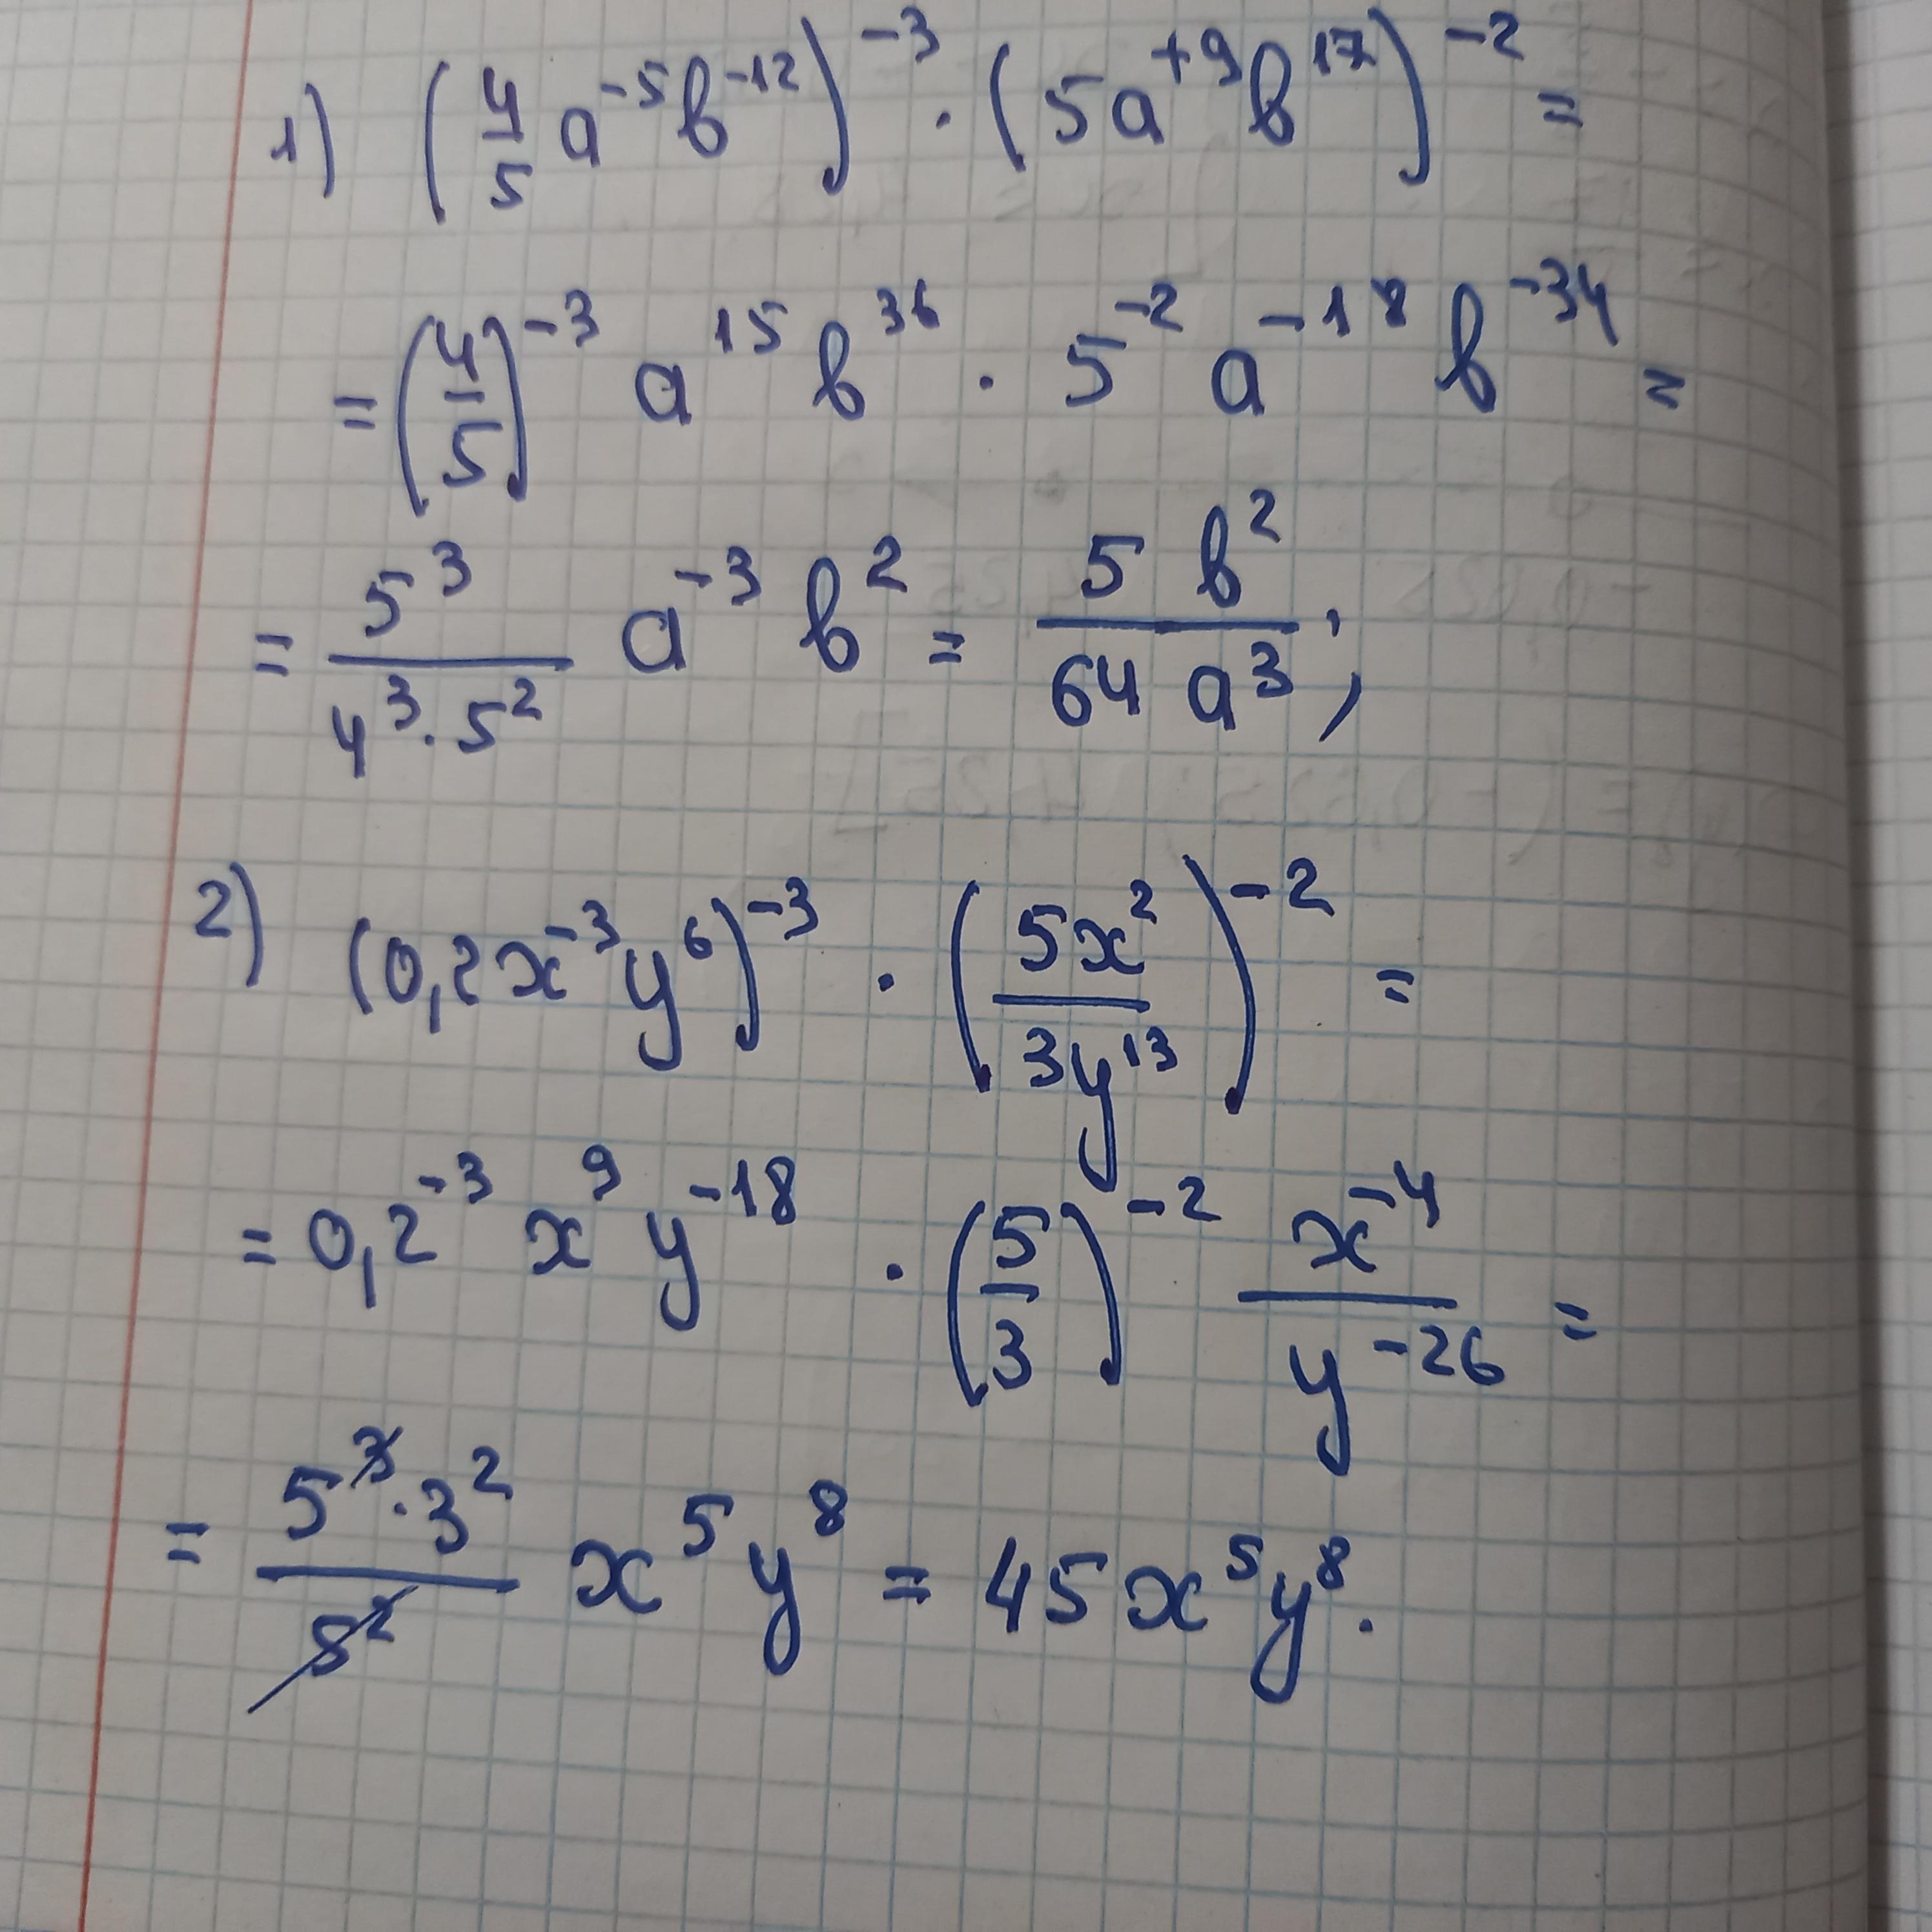 1) (4/5 a^-5 b^-12)^-3 · (5a^+9 b^17)^-2 =
= (4/5)^-3 a^15 b^36 · 5^-2 a^-18 b^-34 =
= 5^3/(4^3 · 5^2) a^-3 b^2 = 5 b^2/(64 a^3);
2) (0,2x^-3 y^6)^-3 · (5x^2/(3y^13))^-2 =
= 0,2^-3 x^9 y^-18 · (5/3)^-2 x^-4/y^-26 =
= (5^3 · 3^2)/5^2 x^5 y^8 = 45x^5 y^8.